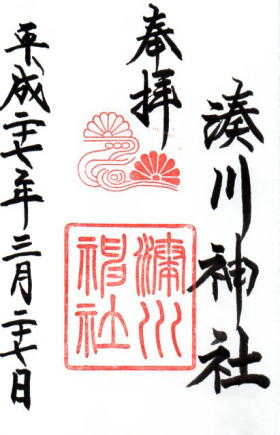 奉拝
湊川神社
湊川神社
平成二十七年三月二十七日